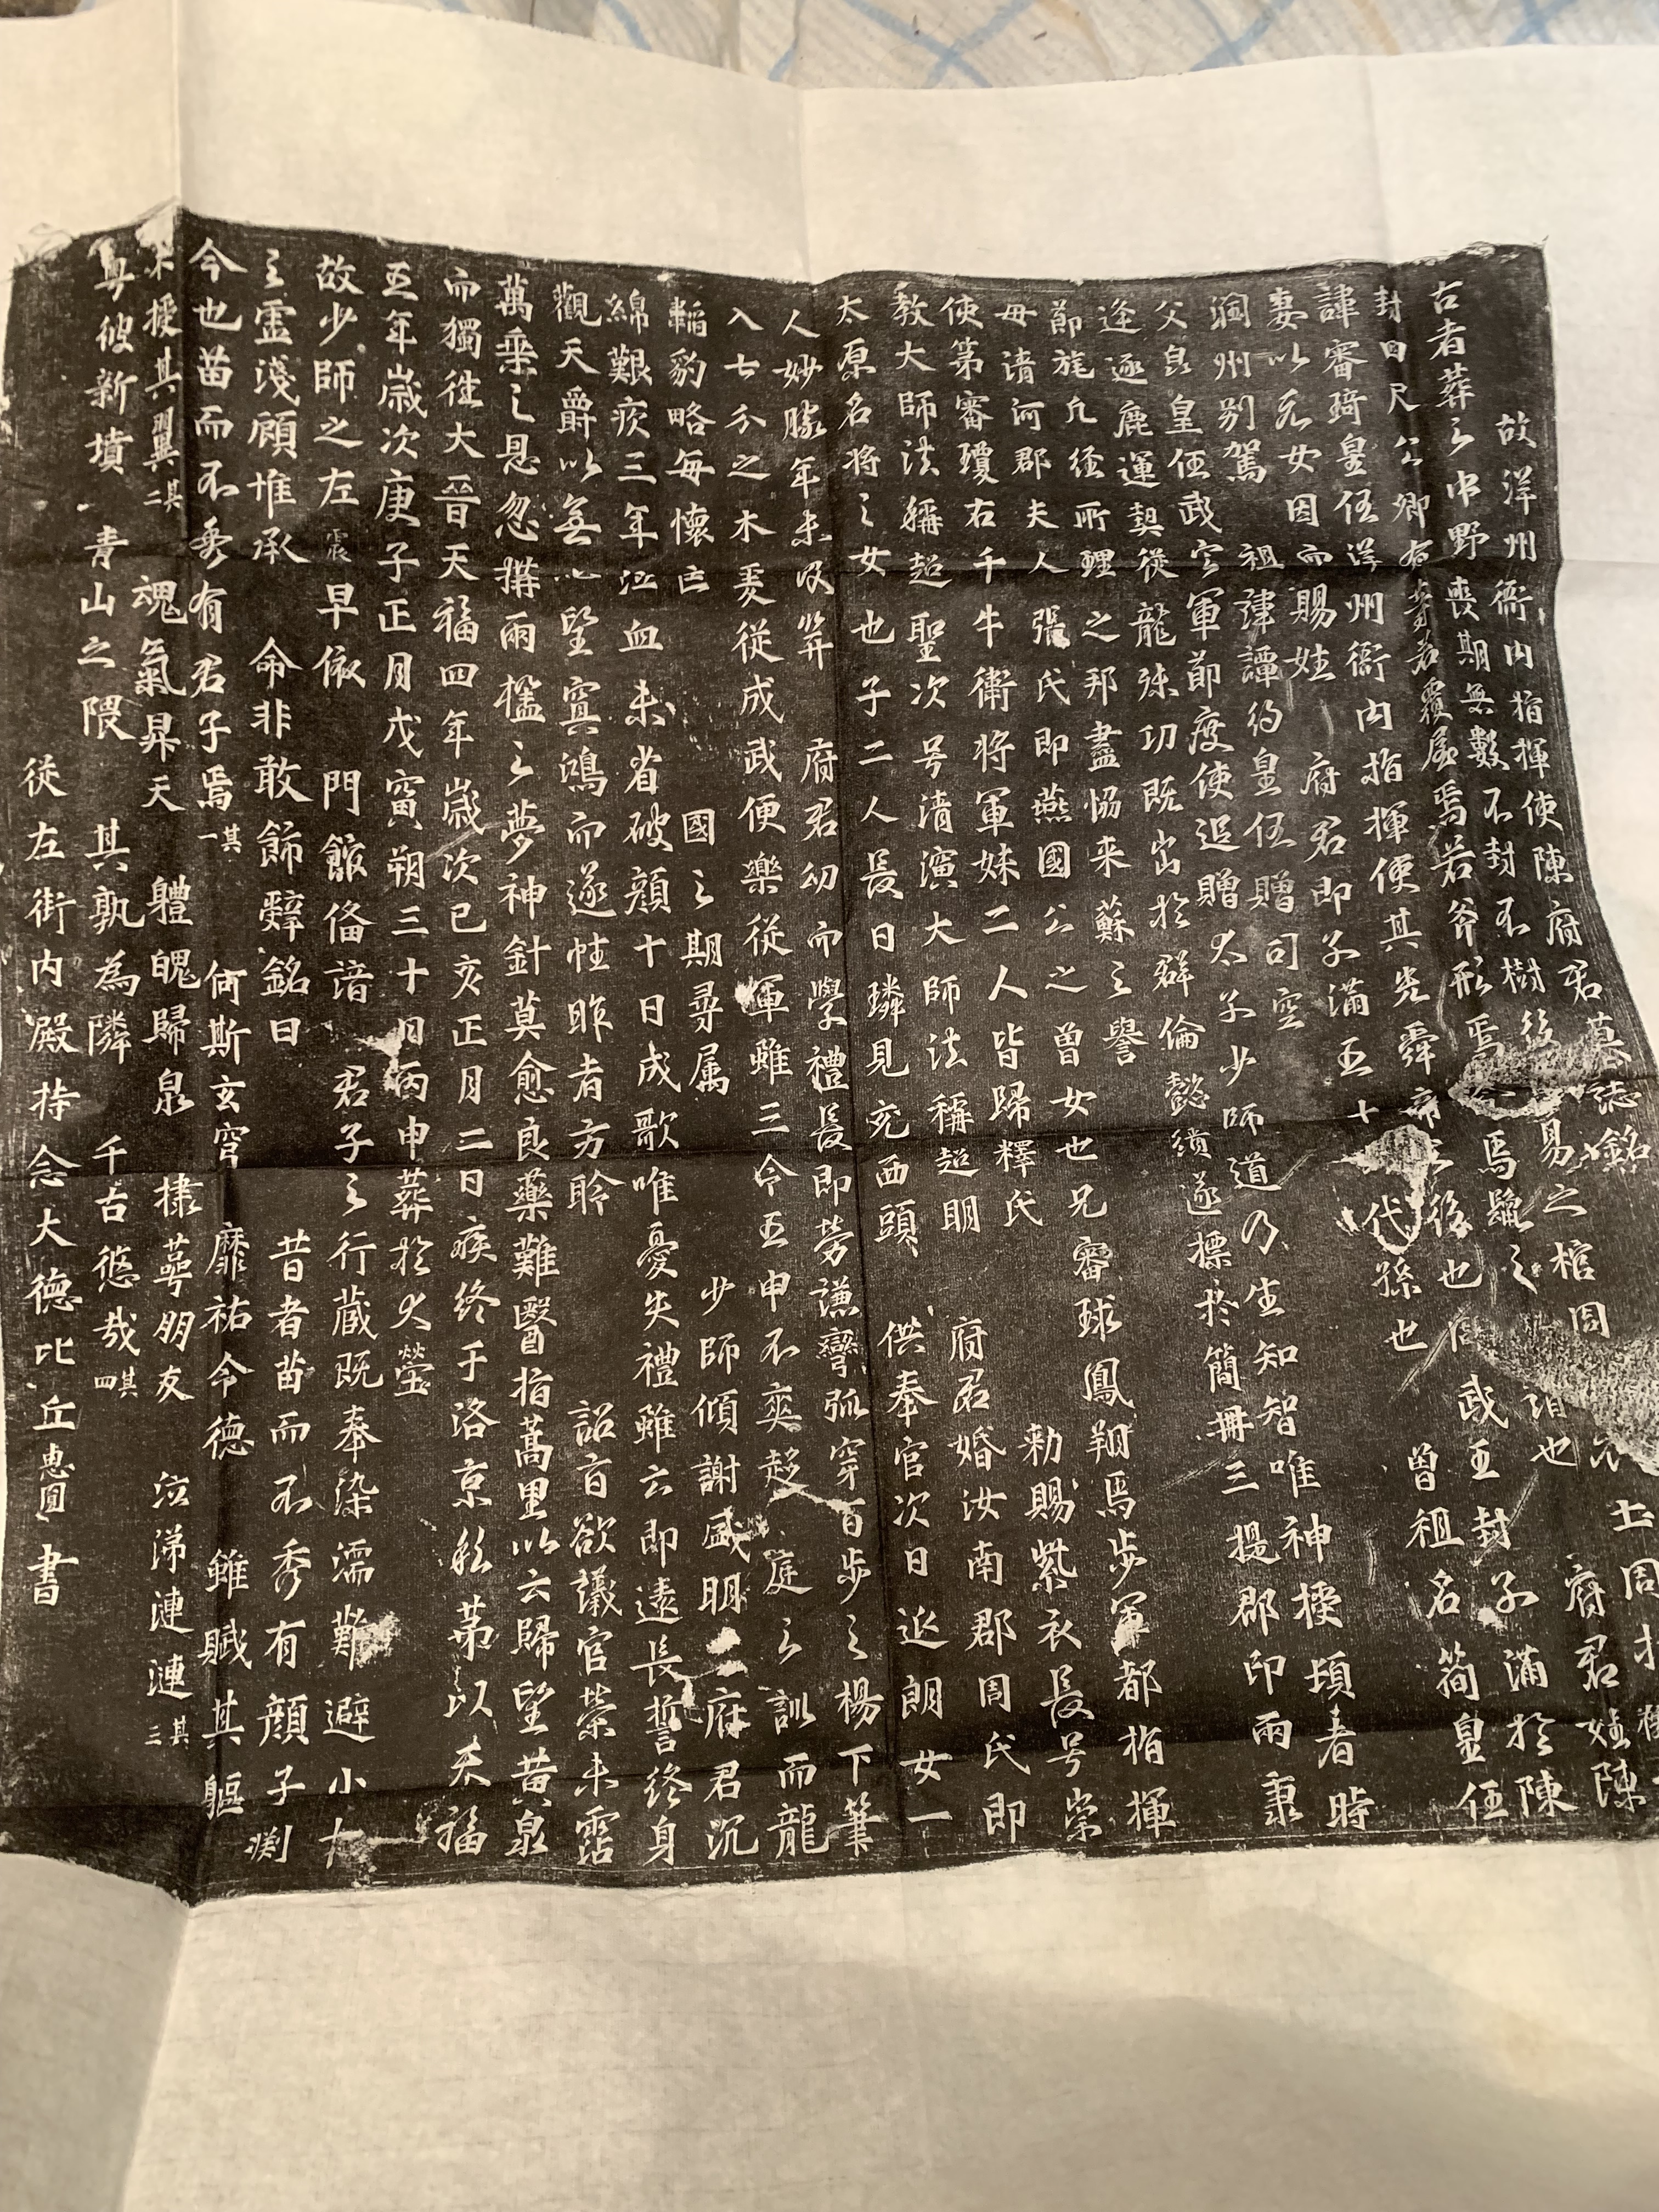 故洋州衙内指揮使陳府君墓誌銘
古者葬之中野喪期無數不封不樹後 易之棺周 土周
封四尺 公卿 若覆屋焉若斧形焉 焉鬣之 府君姓陳
諱審琦皇任洋州衙内指揮使其先舜帝之後也 武王封子滿於陳
妻以元女因而賜姓 府君即子滿五十 代孫也 曾祖名簡皇任
閬州别駕 祖諱譚約皇任贈司空
父皇皇任武定軍節度使追贈太子少師道乃生知智唯神授頃者時
逢逐鹿運契從龍殊功既出於群倫懿績遂標於簡冊三提郡印兩秉
節旄凡經所歷之邦盡恊来蘇之譽
母清河郡夫人張氏即燕國公之曽女也兄審球鳳翔馬步軍都指揮
使第審瓊右千牛衛将軍妹二人皆歸釋氏 勑賜紫衣長号崇
教大師法稱超聖次号清演大師法稱超明 府君婚汝南郡周氏即
太原名将之女也子二人長日璘見充西頭 供奉官次日延朗女一
人妙勝年未及笄 府君幼而學禮長即勞謙彎弧穿百步之楊下筆
入七分之木爰從成武便樂從軍雖三令五申不奕趍庭之訓而龍
韜豹略每懷 國之期尋属 少師傾謝盛明 府君沉
綿艱疾三年泣血未省破顔十日成歌唯憂失禮雖云即遠長誓終身
觀天爵以無 望冥鴻而遂性昨者方聆 詔旨欲議官榮未霑
萬乗之恩忽搆兩楹之夢神針莫愈良藥難醫指蒿里以云歸望黄泉
而獨徃大晉天福四年歲次己亥正月二日疾終于洛京私苐以天福
五年歲次庚子正月戊寅朔三十日丙申葬於大塋
故少師之左 震早依 門館俻諳 君子之行藏既奉染濡難避小才
之靈淺顧惟承 命非敢飾辭銘曰 昔者苗而不秀有顔子渕
今也苗而不秀有君子焉其一 何斯玄穹 靡祐令德 雖賦其軀
未授其翼其二 魂氣昇天 軆魄歸泉 棣萼朋友 泣涕漣漣其三
彼新墳 青山之隈 其孰為隣 千古悠哉其四
従左街内殿持念大德比丘惠圓書